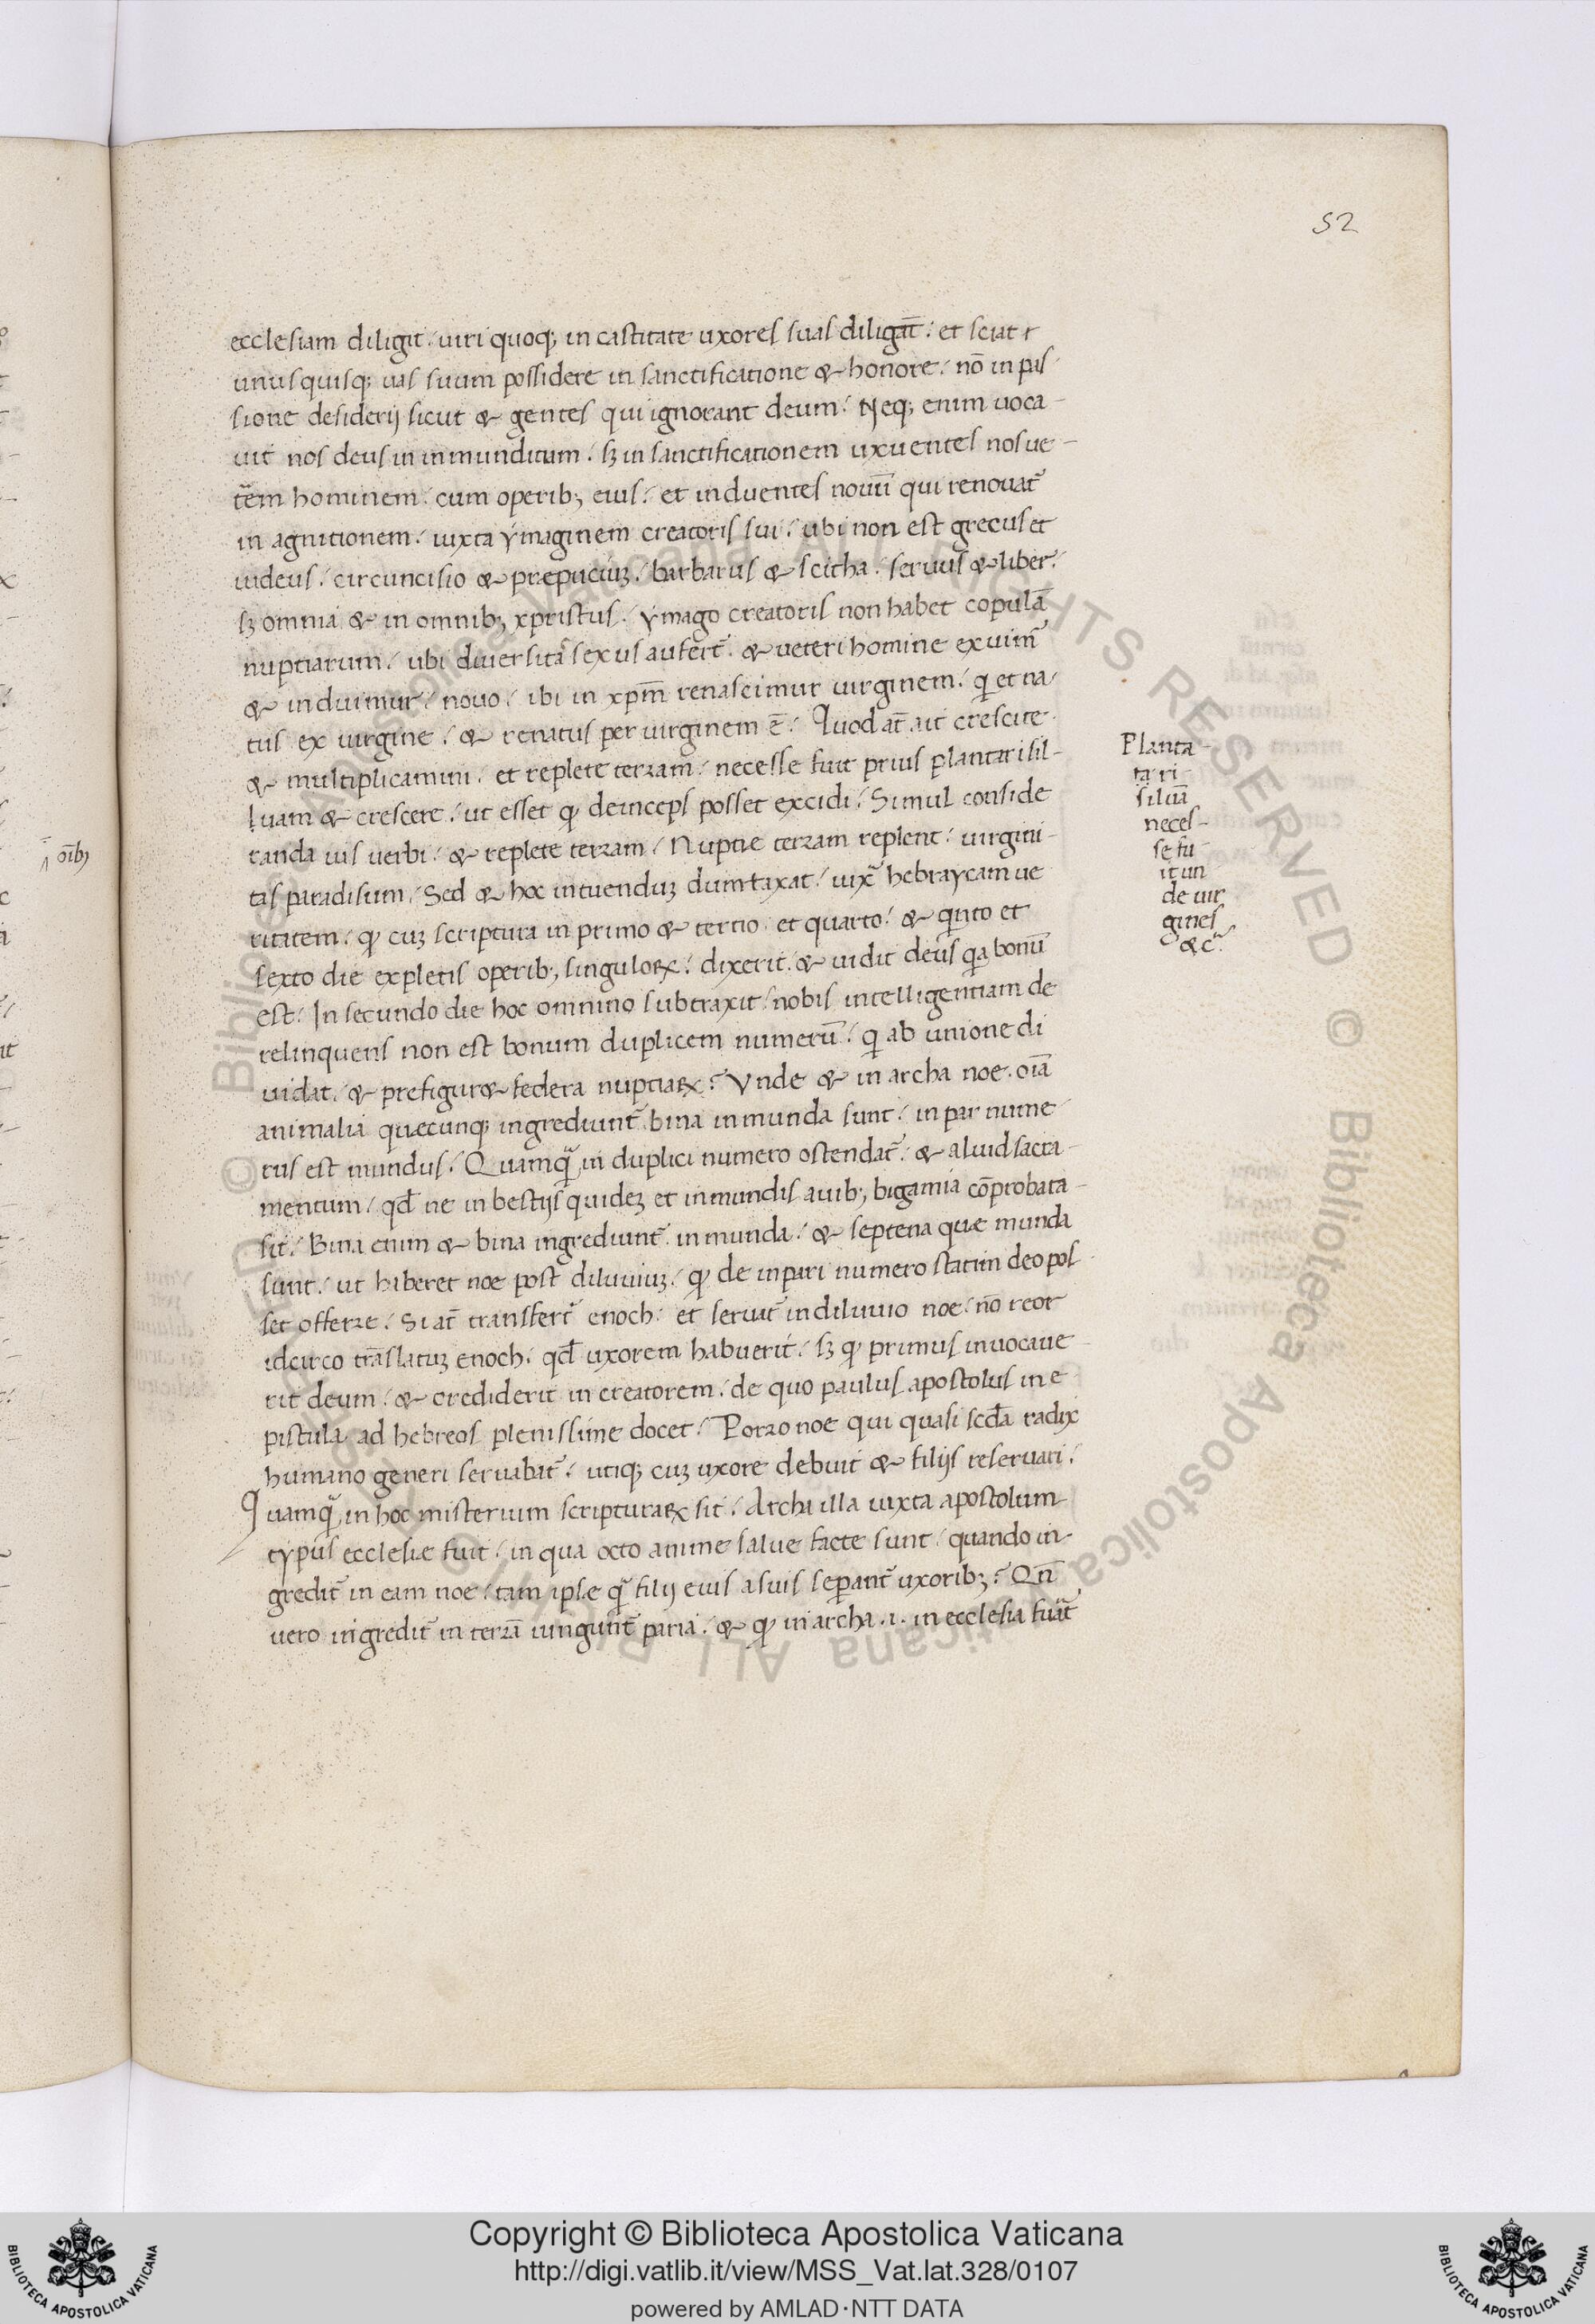 52
ecclesiam diligit / uiri quoq; in castitate uxores suas diligāt / et sciat r
unusquisq; uas suum possidere in sanctificatione & honore / nō in pas
sione desiderij sicut & gentes qui ignorant deum / Neq; enim uoca-
uit nos deus in inmunditiam / sȝ in sanctificationem uxuentes nos ue-
tẽm hominem / cum operib; eius / et induentes nouū qui renouat̃
in agnitionem / iuxta ẏmaginem creatoris sui / ubi non est grecus et
iudeus / circuncisio & prepuciuȝ / barbarus & scitha / seruus & liber /
sȝ omnia & in omnib; xpristus / ẏmago creatoris non habet copulā
nuptiarum / ubi diuersita sexus aufert̃ & ueteri homine exuim̃
& induimur / nouo / ibi in xpm̄ renascimur uirginem / qi et na/
tus ex uirgine / & renatus per uirginem ē / Quod at̄ ait crescite
& multiplicamini / et replete terram / necesse fuit prius plantari sil-
luam & crescere / ut esset qᵈ deinceps posset excidi / Simul conside
randa uis uerbi / & replete terram / Nuptie terram replent / uirgini-
tas paradisum / Sed & hoc intuenduȝ dumtaxat / iuxᵃ hebraycam ue
ritatem / qᵈ cuȝ scriptura in primo & tercio / et quarto / & qⁱnto et
sexto die expletis operib; singuloꝝ / dixerit / & uidit deus qa bonū
est / In secundo die hoc omnino subtraxit / nobis intelligentiam de
relinquens non est bonum duplicem numerū / qi ab unione di
uidat / & prefiguret federa nuptiaꝝ / Vnde & in archa noe oīa
animalia quecunq; ingrediunt̃ bina inmunda sunt / in par nume
rus est mundus / Quamqᵃ in duplici numero ostendat̃ / & aliud sacra-
mentum / qd̄ ne in bestijs quideȝ et inmundis auib; bigamia cōprobata-
sit / Bina enim & bina ingrediunt̃ inmunda / & septena que munda
sunt / ut haberet noe post diluuiuȝ / qᵈ de inpari numero statim deo pos
set offerre / Si at̄ transfert̃ enoch / et seruat̃ in diluuio noe / nō reor
idcirco trāslatuȝ enoch / qd̄ uxorem habuerit / sȝ qᵈ primus inuocaue-
rit deum / & crediderit in creatorem / de quo paulus apostolus in e
pistula ad hebreos plenissime docet / Porro noe qui quasi scd̄a radix
humano generi seruabat̃ / utiq; cuȝ uxore debuit & filijs reseruari /
Quamqᵃ in hoc misterium scripturaꝝ sit / Archa illa iuxta apostolum-
typus ecclesie fuit / in qua octo anime salue facte sunt / quando in-
gredit̃ in eam noe / tam ipse qᵃ filij eius a suis separant̃ uxoribȝ / Qn̄
uero ingredit̃ in terrā iungunt̃ paria / & qᵈ in archa .i. in ecclesia fuāt
Planta-
ta ri-
siluā
neces-
se fu-
it un
de uir
gines
&c̃.
oīb;
Copyright © Biblioteca Apostolica Vaticana
http://digi.vatlib.it/view/MSS_Vat.lat.328/0107
powered by AMLAD·NTT DATA
BIBLIOTECA APOSTOLICA VATICANA
BIBLIOTECA APOSTOLICA VATICANA